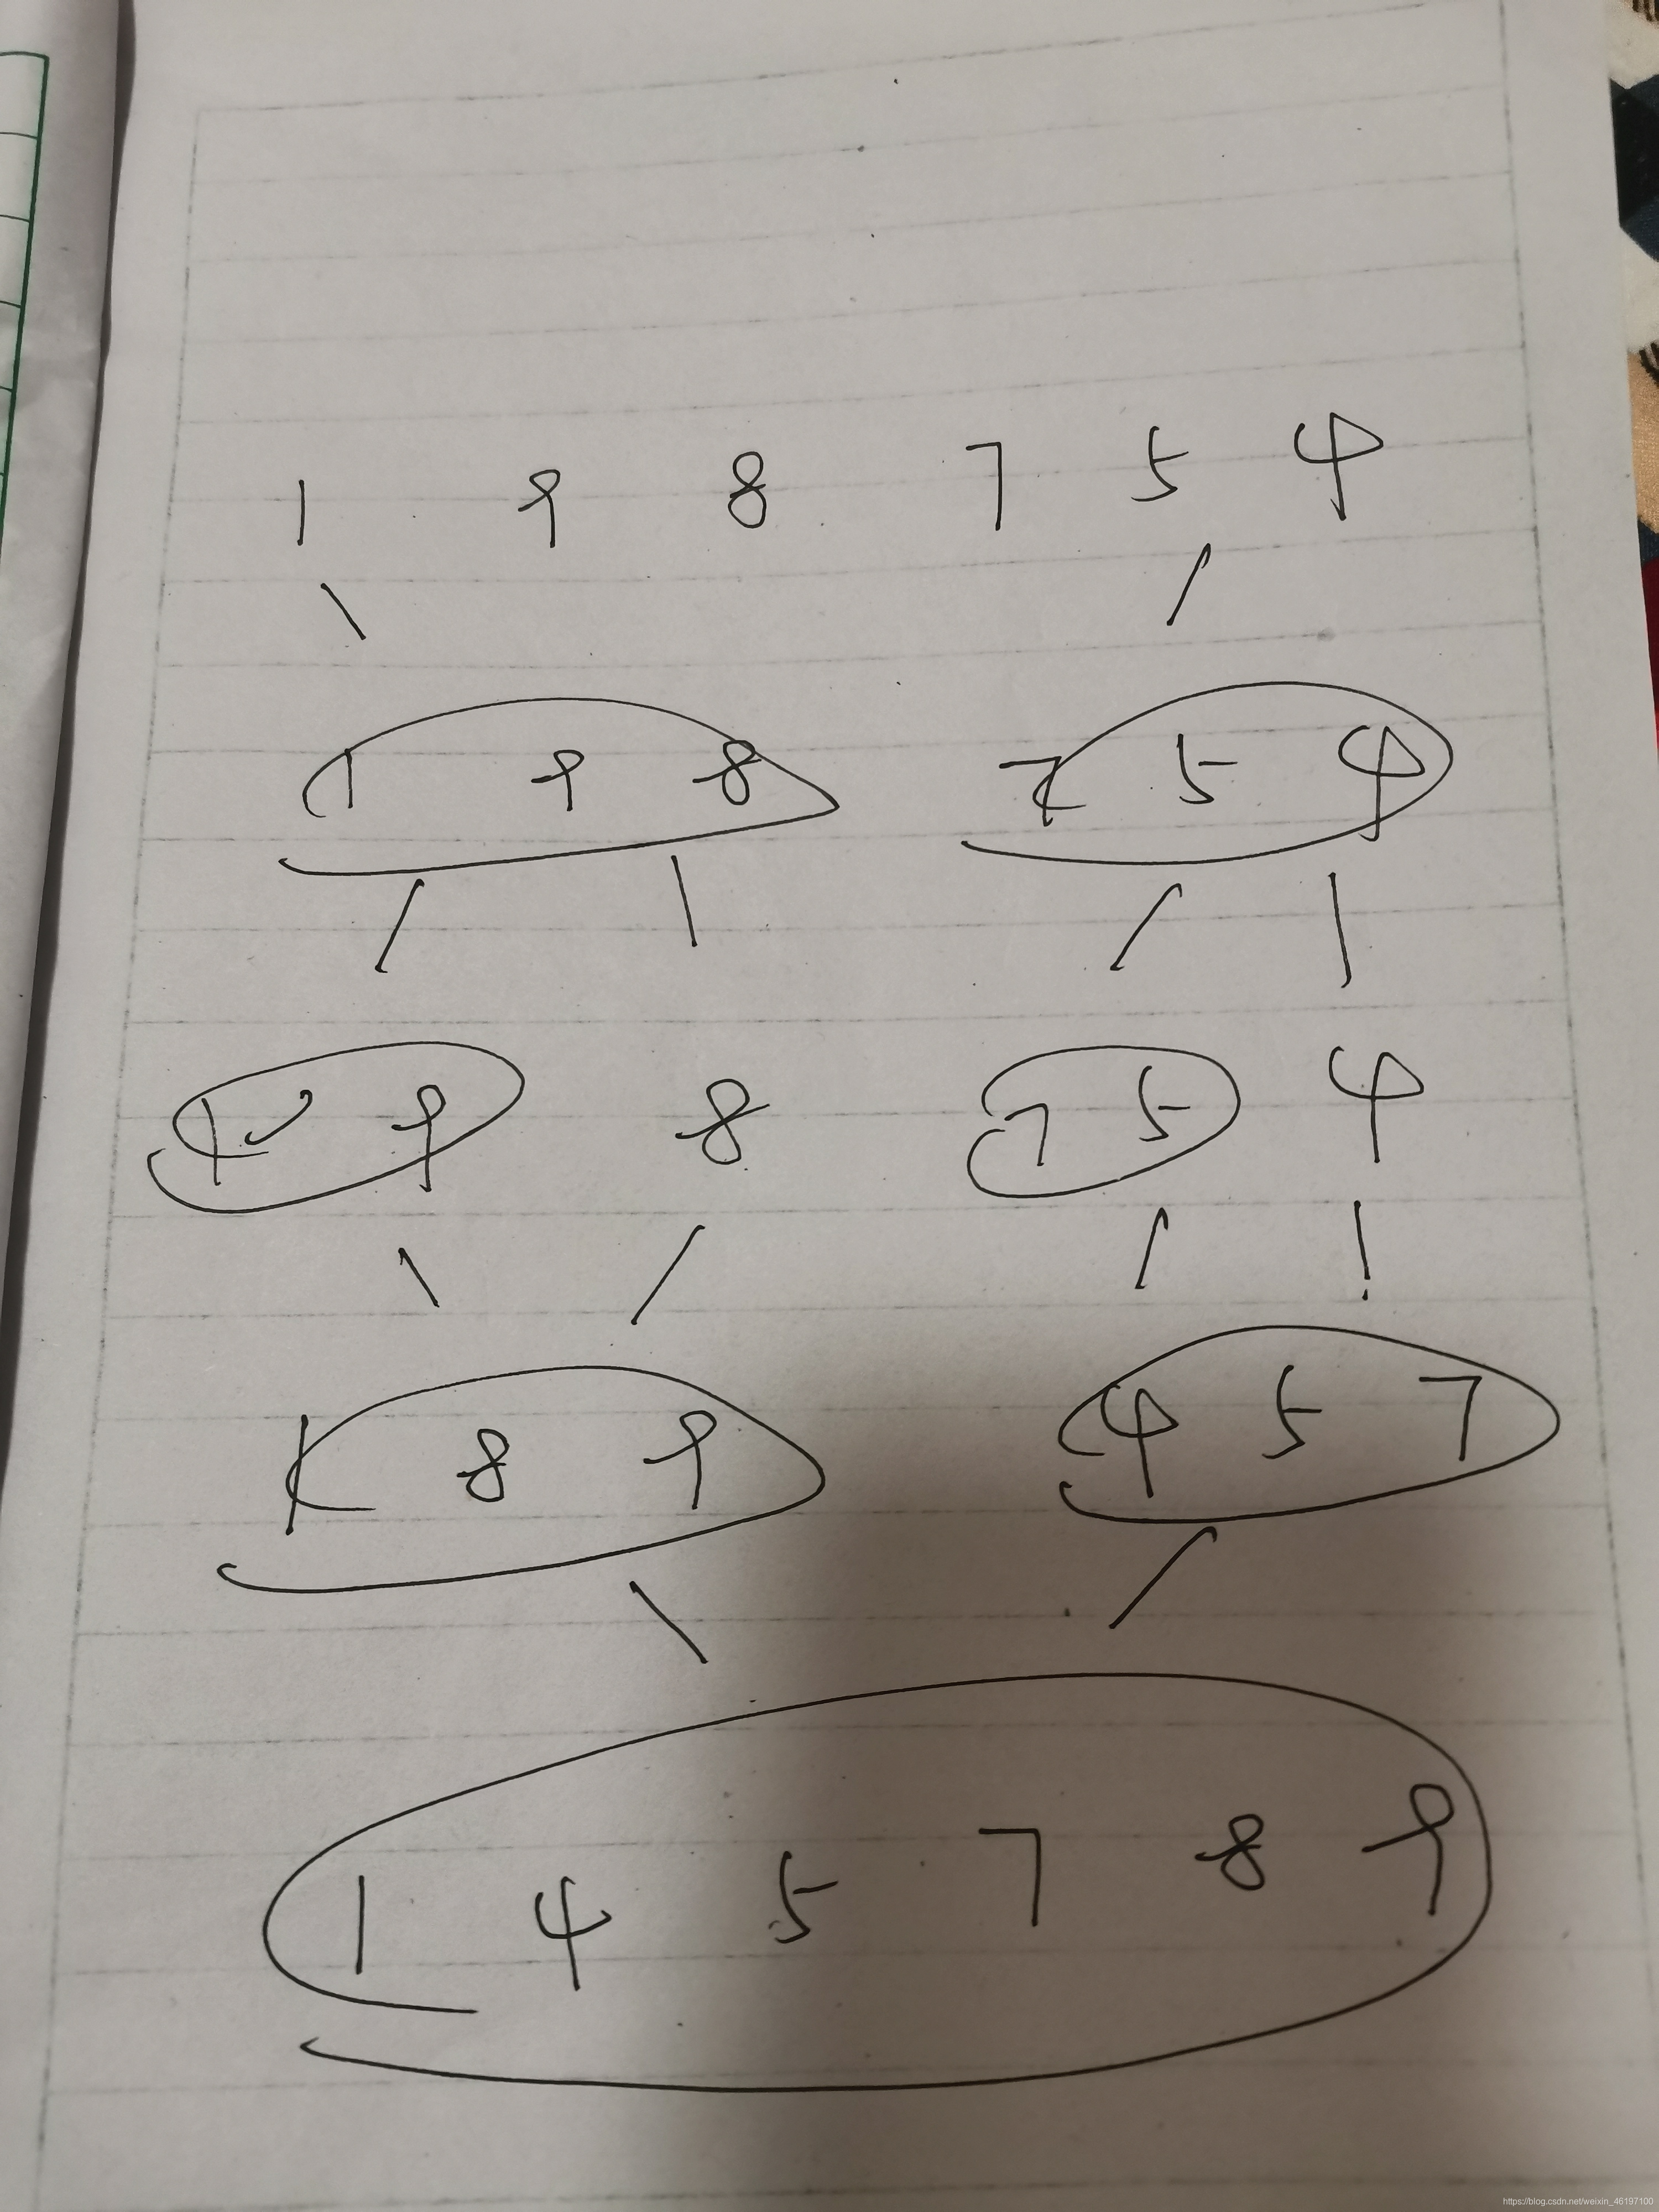 1 9 8 7 5 4
1 9 8 7 5 4
1 9 8 7 5 4
1 8 9 4 5 7
1 4 5 7 8 9
https://blog.csdn.net/weixin_46197100